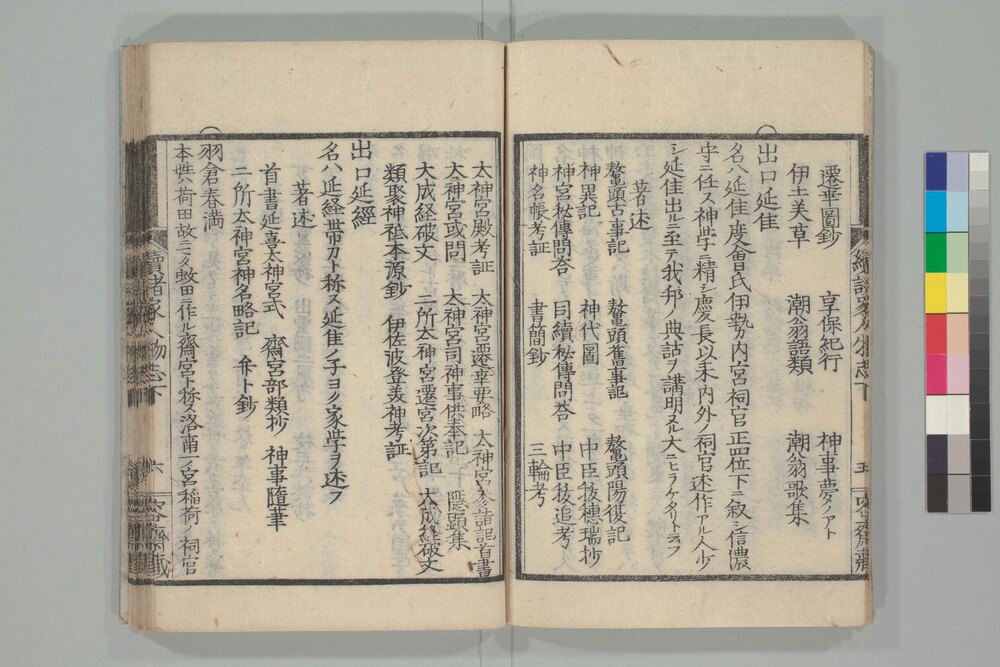 遷華圖鈔 享保紀行 神事夢ノアト
伊土美草 潮翁語類 潮翁歌集
出口延佳
名ハ延佳度會氏伊勢内宮祠官正四位下ニ敘シ信濃
守ニ任ス神学ニ精シ慶長以来内外ノ祠官述作アル人少
シ延佳出ルニ至テ我邦ノ典詁ヲ講明スル大ニヒラケタリト云フ
著述
鼇頭古事記 鼇頭舊事記 鼇頭陽復記
神異記 神代圖 中臣祓穗瑞抄
神宮秘傳問答 同續秘傳問答 中臣祓追考
神名帳考証 書簡鈔 三輪考
太神宮殿考証 太神宮遷幸要略 太神宮参詣記首書
太神宮或問 太神宮司神事供奉記 隱顕集
大成経破文 二所太神宮遷宮次第記 大成経破文
類聚神祗本源鈔 伊佐波登美神考証
出口延經
名ハ延経帯刀ト称ス延佳ノ子ヨク家学ヲ述フ
著述
首書延喜太神宮式 齋宮部類抄 神事隨筆
二所太神宮神名略記 弁ト鈔
羽倉春満
本姓ハ荷田故ニ又蚊田ニ作ル齋宮ト称ス洛南一ノ宮稲荷ノ祠官
續諸家人物志下
五
續諸家人物志下
六